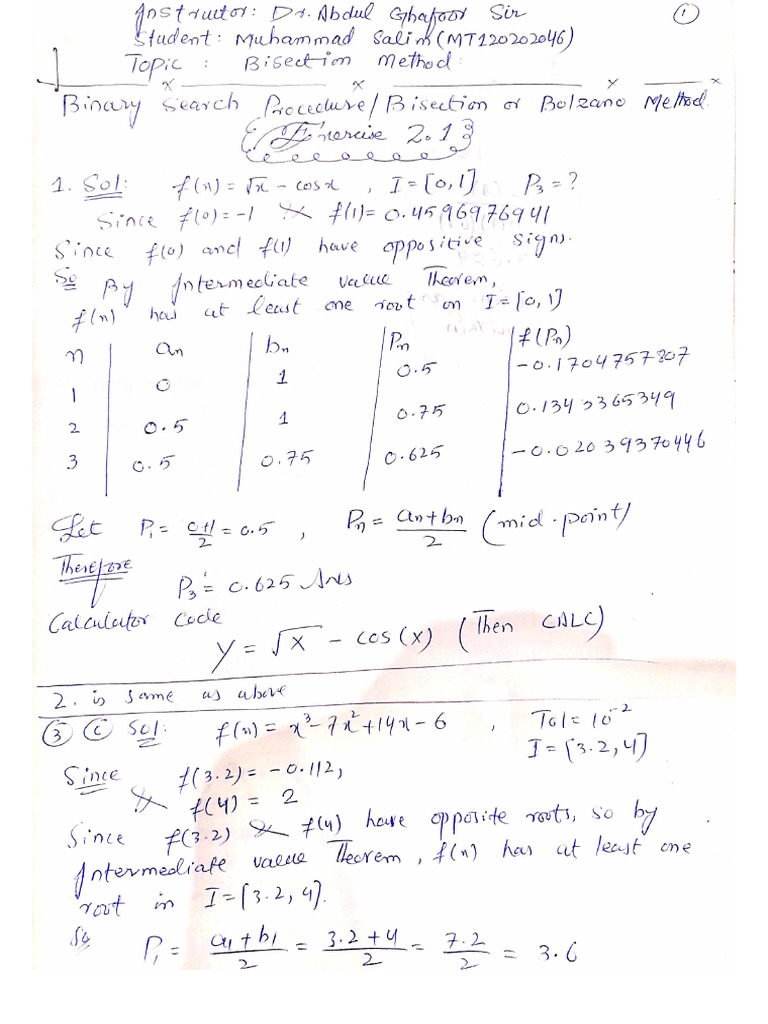 Instructor: Dr. Abdul Ghafoor Sir
①
Student: Muhammad Salim (MT120202046)
Topic : Bisection Method:
Binary Search Procedure/Bisection or Bolzano Method.
Exercise 2.1
1. Sol: f(x) = √x - cosx , I = [0,1] P₃ = ?
Since f(0) = -1 & f(1) = 0.4596976941
Since f(0) and f(1) have oppositive signs.
So By Intermediate value Theorem,
f(x) has at least one root on I = [0,1]
n aₙ bₙ Pₙ f(Pₙ)
1 0 1 0.5 -0.1704757807
2 0.5 1 0.75 0.1343365349
3 0.5 0.75 0.625 -0.02039370446
Let P₁ = 0+1/2 = 0.5 , Pₙ = aₙ+bₙ/2 (mid-point)
Therefore
P₃ = 0.625 Ans
Calculator Code
y = √x - cos(x) (Then CALC)
2. is same as above
③ ⓒ Sol: f(x) = x³-7x²+14x-6 , Tol = 10⁻²
I = [3.2, 4]
Since f(3.2) = -0.112,
& f(4) = 2
Since f(3.2) & f(4) have opposite roots, so by
Intermediate value Theorem, f(x) has at least one
root in I = [3.2, 4].
So P₁ = a₁+b₁/2 = 3.2+4/2 = 7.2/2 = 3.6